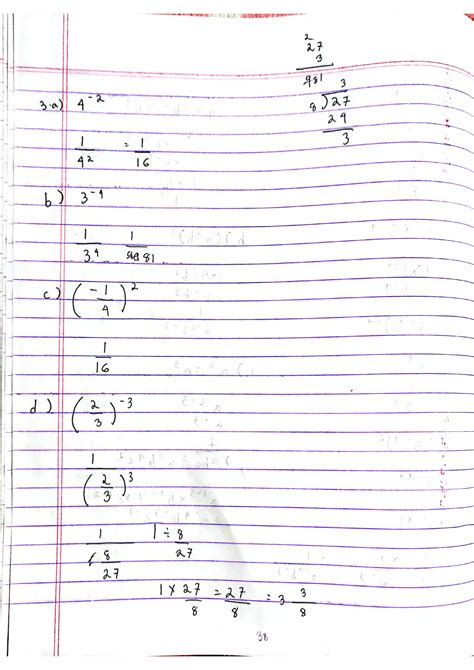 2
27
3
481
3
8)27
24
3
3.a) 4^-2
1/4^2 = 1/16
b) 3^-4
1/3^4 1/81
c) (-1/4)^2
1/16
d) (2/3)^-3
1/(2/3)^3
1/(8/27) 1 ÷ 8/27
1 × 27/8 = 27/8 = 3 3/8
38